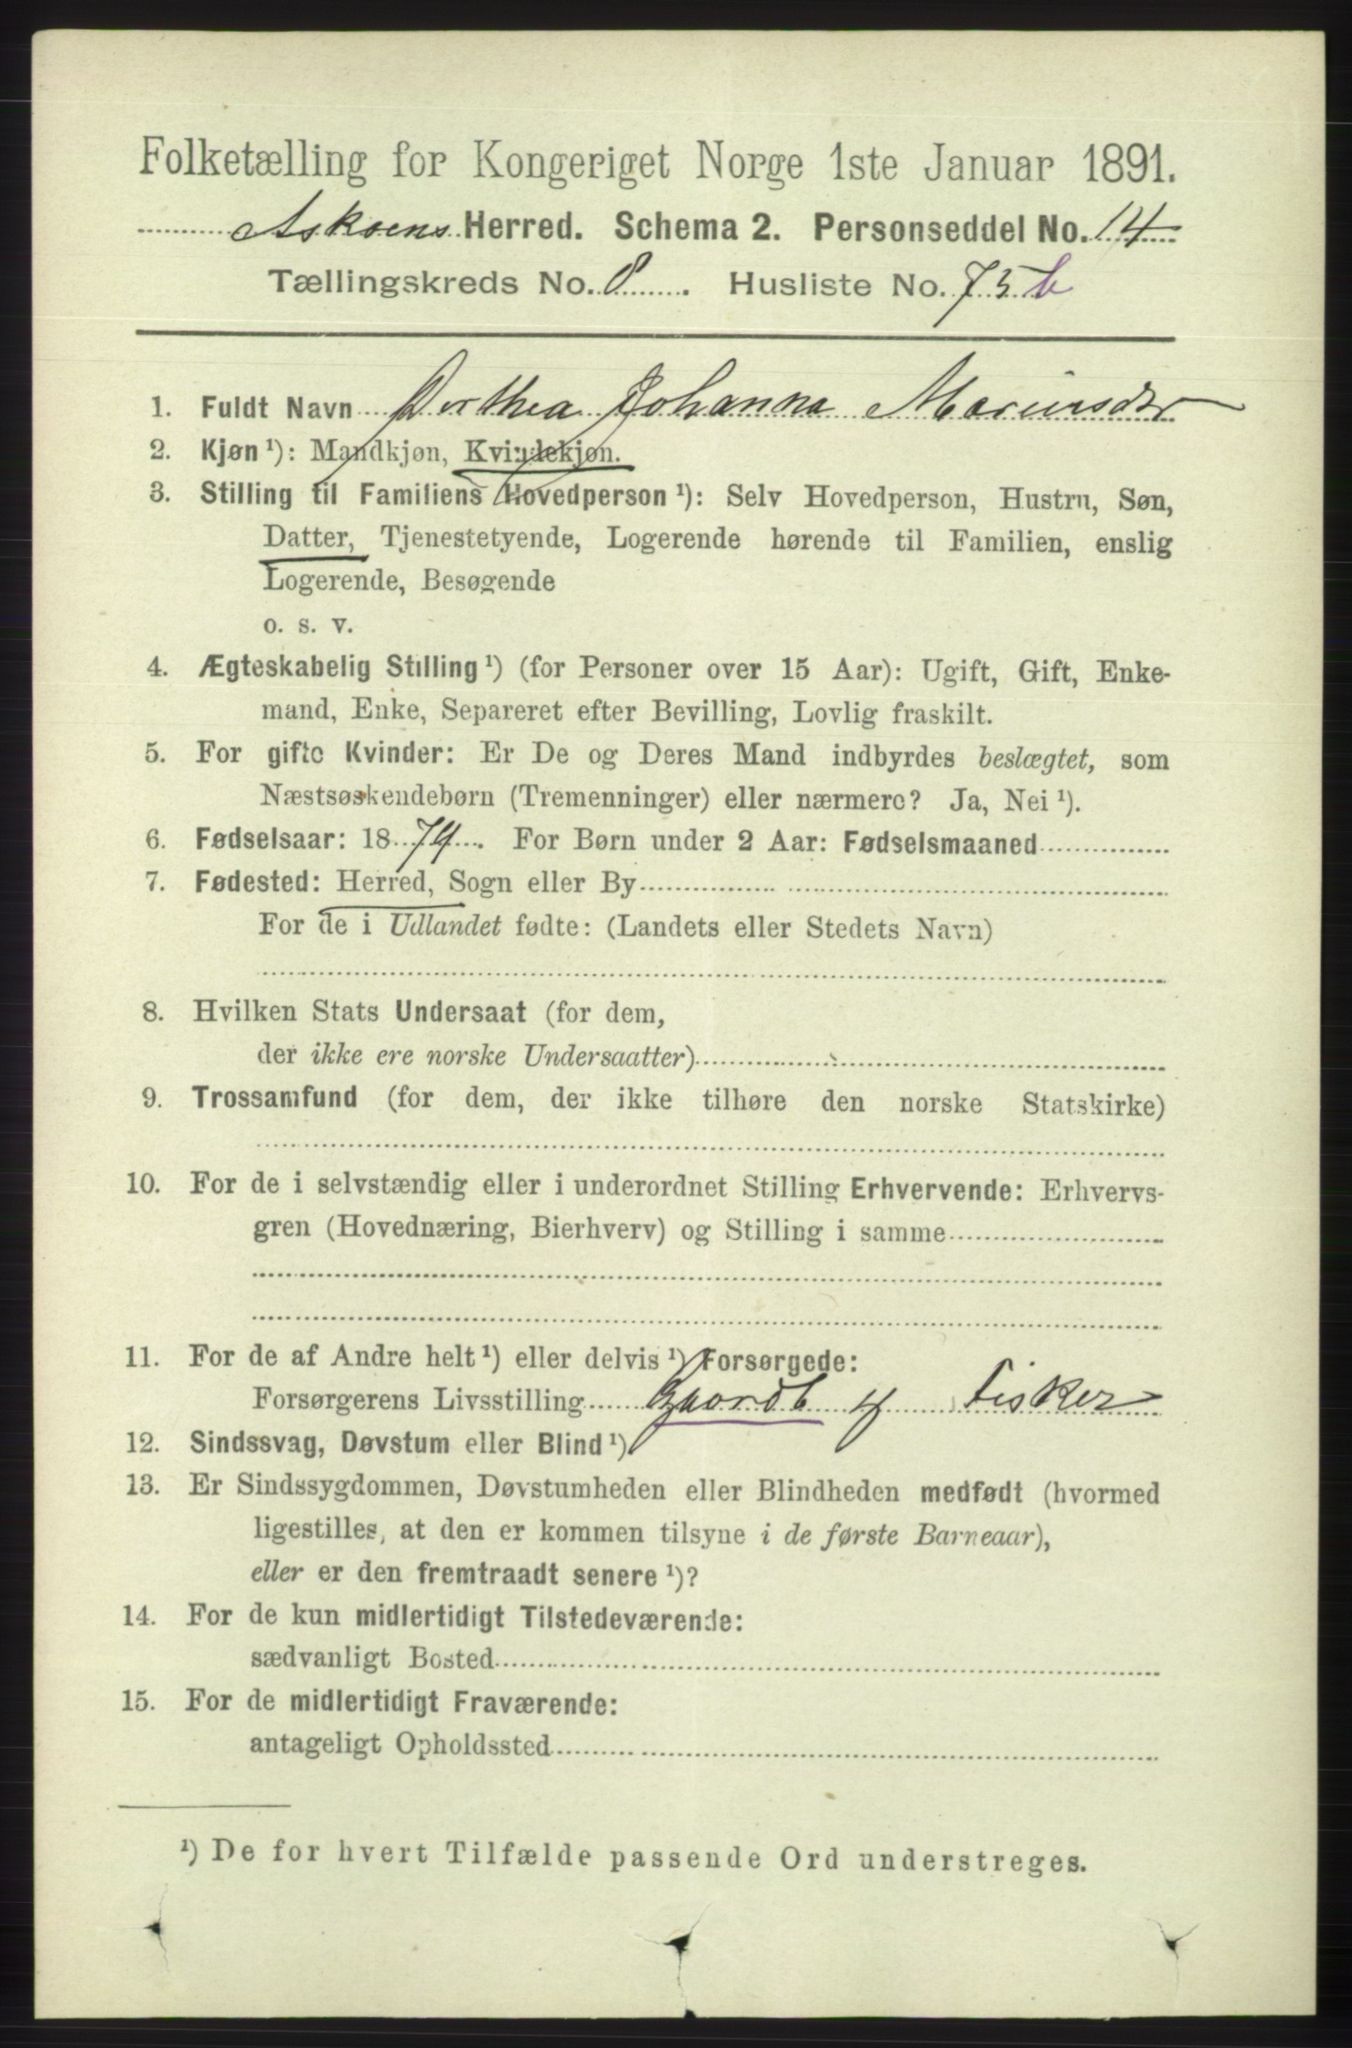 Folketælling for Kongeriget Norge 1ste Januar 1891.
Askøens Herred. Schema 2. Personseddel No. 14
Tællingskreds No. 8. Husliste No. 75 b
1. Fuldt Navn Dorthea Johanna Mariusdtr
2. Kjøn ¹): Mandkjøn, Kvindekjøn.
3. Stilling til Familiens Hovedperson ¹): Selv Hovedperson, Hustru, Søn,
Datter, Tjenestetyende, Logerende hørende til Familien, enslig
Logerende, Besøgende
o. s. v.
4. Ægteskabelig Stilling ¹) (for Personer over 15 Aar): Ugift, Gift, Enke-
mand, Enke, Separeret efter Bevilling, Lovlig fraskilt.
5. For gifte Kvinder: Er De og Deres Mand indbyrdes beslægtet, som
Næstsøskendebørn (Tremenninger) eller nærmere? Ja, Nei ¹).
6. Fødselsaar: 1874. For Børn under 2 Aar: Fødselsmaaned
7. Fødested: Herred, Sogn eller By
For de i Udlandet fødte: (Landets eller Stedets Navn)
8. Hvilken Stats Undersaat (for dem,
der ikke ere norske Undersaatter)
9. Trossamfund (for dem, der ikke tilhøre den norske Statskirke)
10. For de i selvstændig eller i underordnet Stilling Erhvervende: Erhvervs-
gren (Hovednæring, Bierhverv) og Stilling i samme
11. For de af Andre helt ¹) eller delvis ¹) Forsørgede:
Forsørgerens Livsstilling Gaardb. og Fisker
12. Sindssvag, Døvstum eller Blind ¹)
13. Er Sindssygdommen, Døvstumheden eller Blindheden medfødt (hvormed
ligestilles, at den er kommen tilsyne i de første Barneaar),
eller er den fremtraadt senere ¹)?
14. For de kun midlertidigt Tilstedeværende:
sædvanligt Bosted
15. For de midlertidigt Fraværende:
antageligt Opholdssted
¹) De for hvert Tilfælde passende Ord understreges.